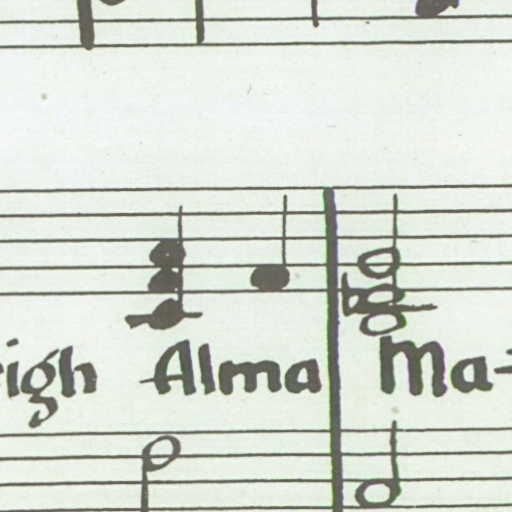 igh Alma Ma-